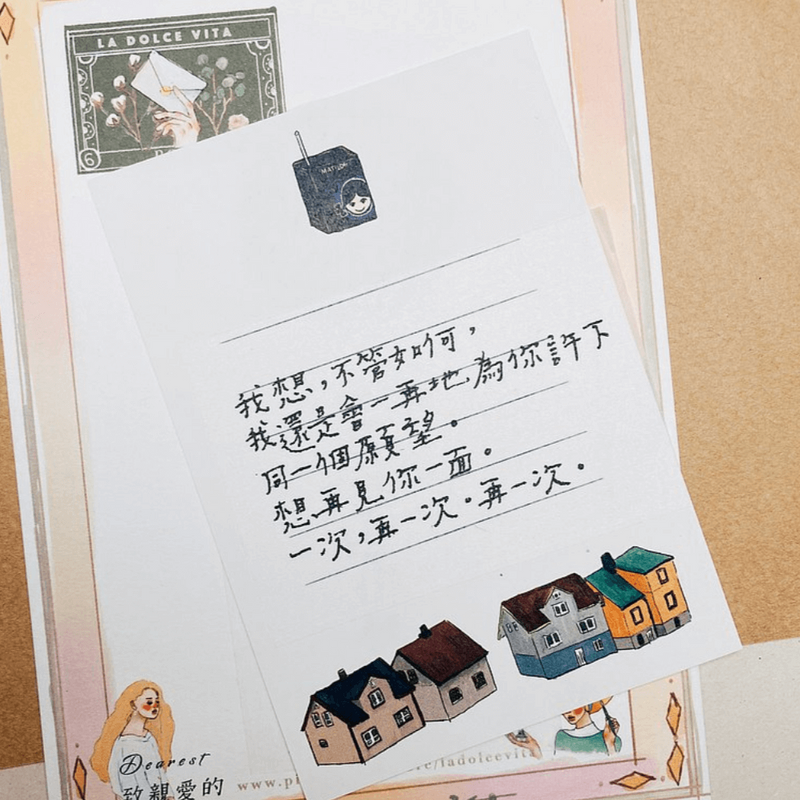 LA DOLCE VITA
6
MATILDA
我想，不管如何，
我還是會一再地為你許下
同一個願望。
想再見你一面。
一次，再一次。再一次。
Dearest
致親愛的
www.pi
e/ladolcevita